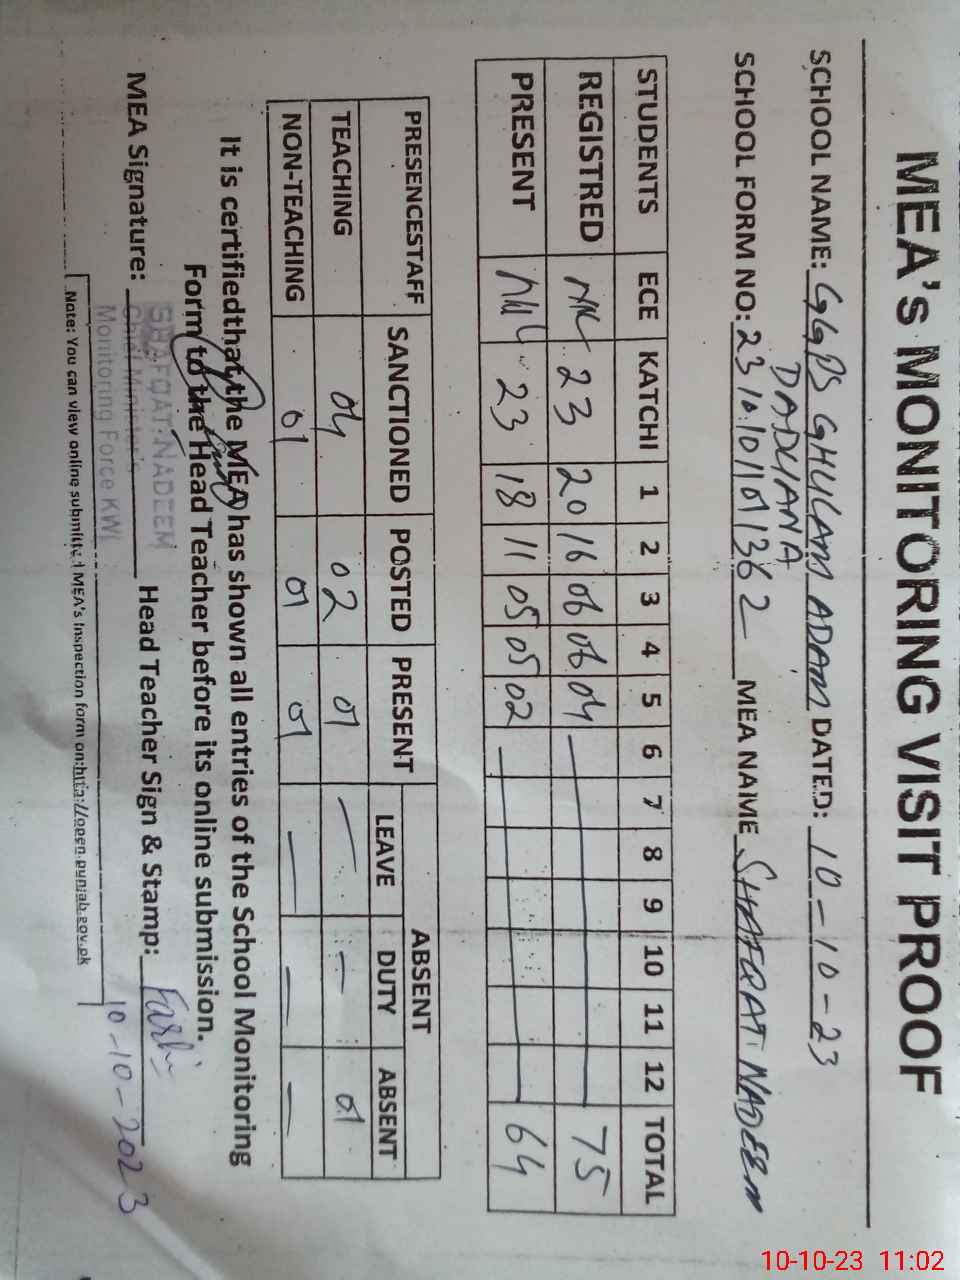 MEA's MONITORING VISIT PROOF
SCHOOL NAME: GGPS GHULAM ADAM DATED: 10-10-23
DADUANA
SCHOOL FORM NO: MEA NAME SHAFQAT NADEEM
STUDENTS ECE KATCHI 1 2 3 4 5 6 7 8 9 10 11 12 TOTAL
REGISTRED 23 20 16 06 06 04 75
PRESENT 23 18 11 05 05 02 64
PRESENCESTAFF SANCTIONED POSTED PRESENT ABSENT
LEAVE DUTY ABSENT
TEACHING 04 02 01 — — 01
NON-TEACHING 01 01 01 — — —
It is certifiedthat the MEA has shown all entries of the School Monitoring
Form to the Head Teacher before its online submission.
MEA Signature: Head Teacher Sign & Stamp:
SHAFQAT NADEEM
Chief Minister's
Monitoring Force KWL
10-10-2023
Note: You can view online submitted MEA's Inspection form on:http://open.punjab.gov.pk
10-10-23 11:02